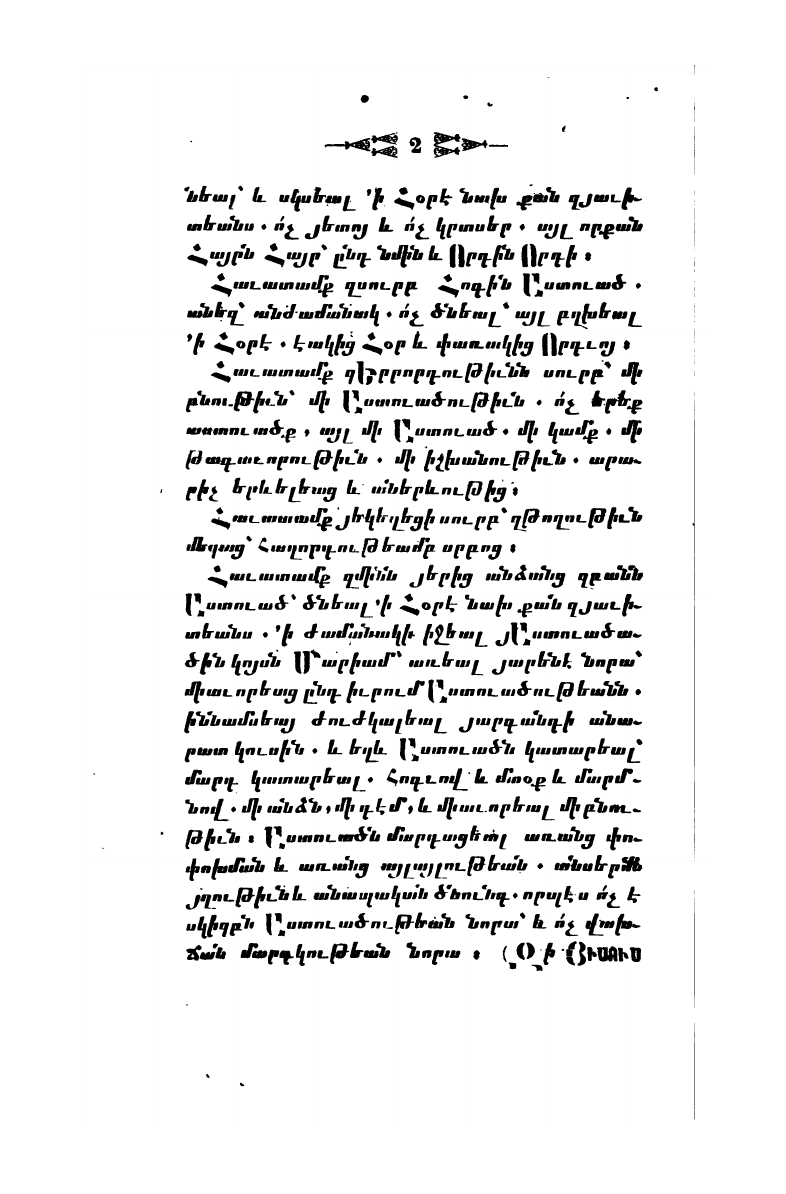 2
նեալ՝ և սկսեալ ՚ի Հօրէ նախ քան զյաւի-
տեանս . ո՛չ յետոյ և ո՛չ կրտսեր . այլ որքան
Հայրն Հայր՝ ընդ նմին և Որդին Որդի ։
Հաւատամք զսուրբ Հոգին Աստուած .
անեղ՝ անժամանակ . ո՛չ ծնեալ՝ այլ բղխեալ
՚ի Հօրէ . էակից Հօր և փառակից Որդւոյ ։
Հաւատամք զԵրրորդութիւնն սուրբ՝ մի
բնութիւն՝ մի Աստուածութիւն . ո՛չ երեք
աստուածք , այլ մի Աստուած . մի կամք . մի
թագաւորութիւն . մի իշխանութիւն . արա-
րիչ երևելեաց և աներևութից ։
Հաւատամք յեկեղեցի սուրբ՝ զթողութիւն
մեղաց՝ հաղորդութեամբ սրբոց ։
Հաւատամք զմինն յերից անձանց զբանն
Աստուած՝ ծնեալ ՚ի Հօրէ նախ քան զյաւի-
տեանս . ՚ի ժամանակի իջեալ յԱստուածա-
ծին կոյսն Մարիամ՝ առեալ յարենէ նորա՝
միաւորեաց ընդ իւրում Աստուածութեանն .
իննամսեայ ժուժկալեալ յարգանդի անա-
րատ կուսին . և եղև Աստուածն կատարեալ՝
մարդ կատարեալ . հոգւով և մտօք և մարմ-
նով . մի անձն , մի դէմ , և միաւորեալ մի բնու-
թիւն ։ Աստուածն մարդացեալ առանց փո-
փոխման և առանց այլայլութեան . անսերմն
յղութիւն և անապական ծնունդ . որպէս ո՛չ է
սկիզբն Աստուածութեան նորա՝ և ո՛չ վախ-
ճան մարդկութեան նորա ։ (Զի Յիսուս